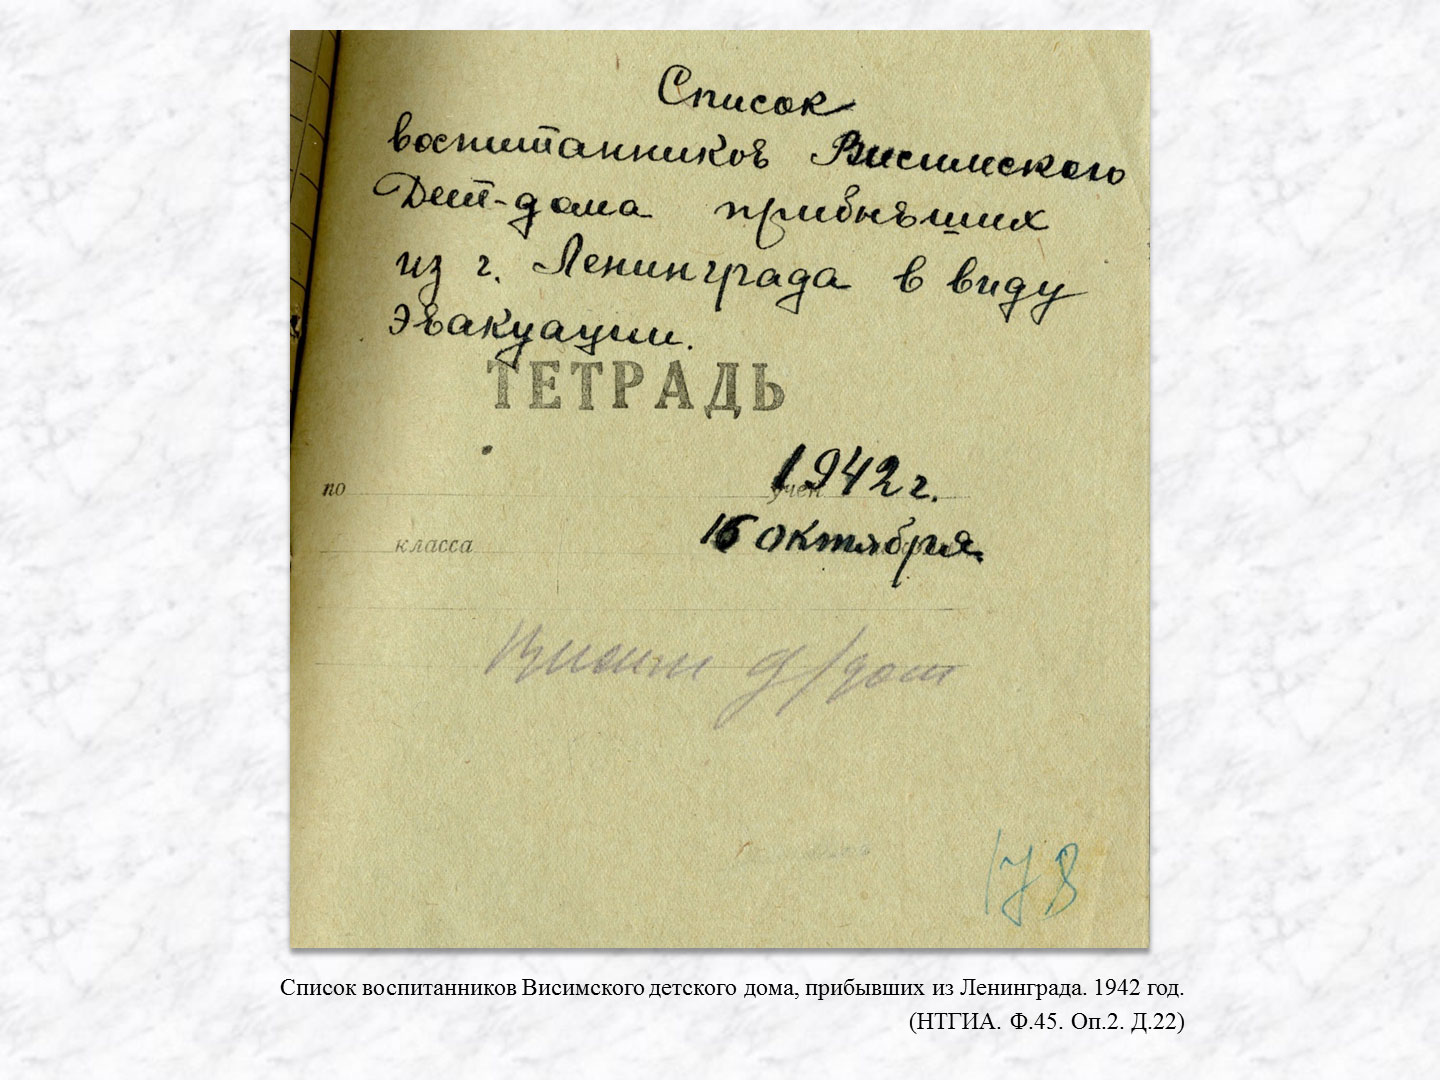 Список
воспитанников Висимского
Дет-дома прибывших
из г. Ленинграда в виду
Эвакуации.
ТЕТРАДЬ
1942 г.
по учен
16 октября
класса
Висим д/дом
178
Список воспитанников Висимского детского дома, прибывших из Ленинграда. 1942 год.
(НТГИА. Ф.45. Оп.2. Д.22)